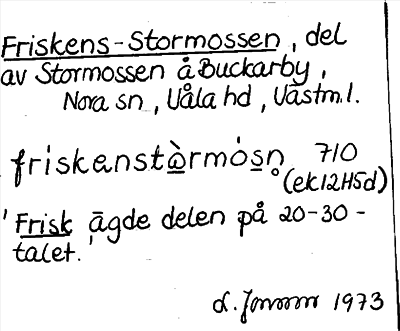 Friskens-Stormossen, del
av Stormossen å Buckarby,
Nora sn, Våla hd, Västm.l.
friskenstòrmósn̥ 710
(ek12H5d)
'Frisk ägde delen på 20-30-
talet.'
1973